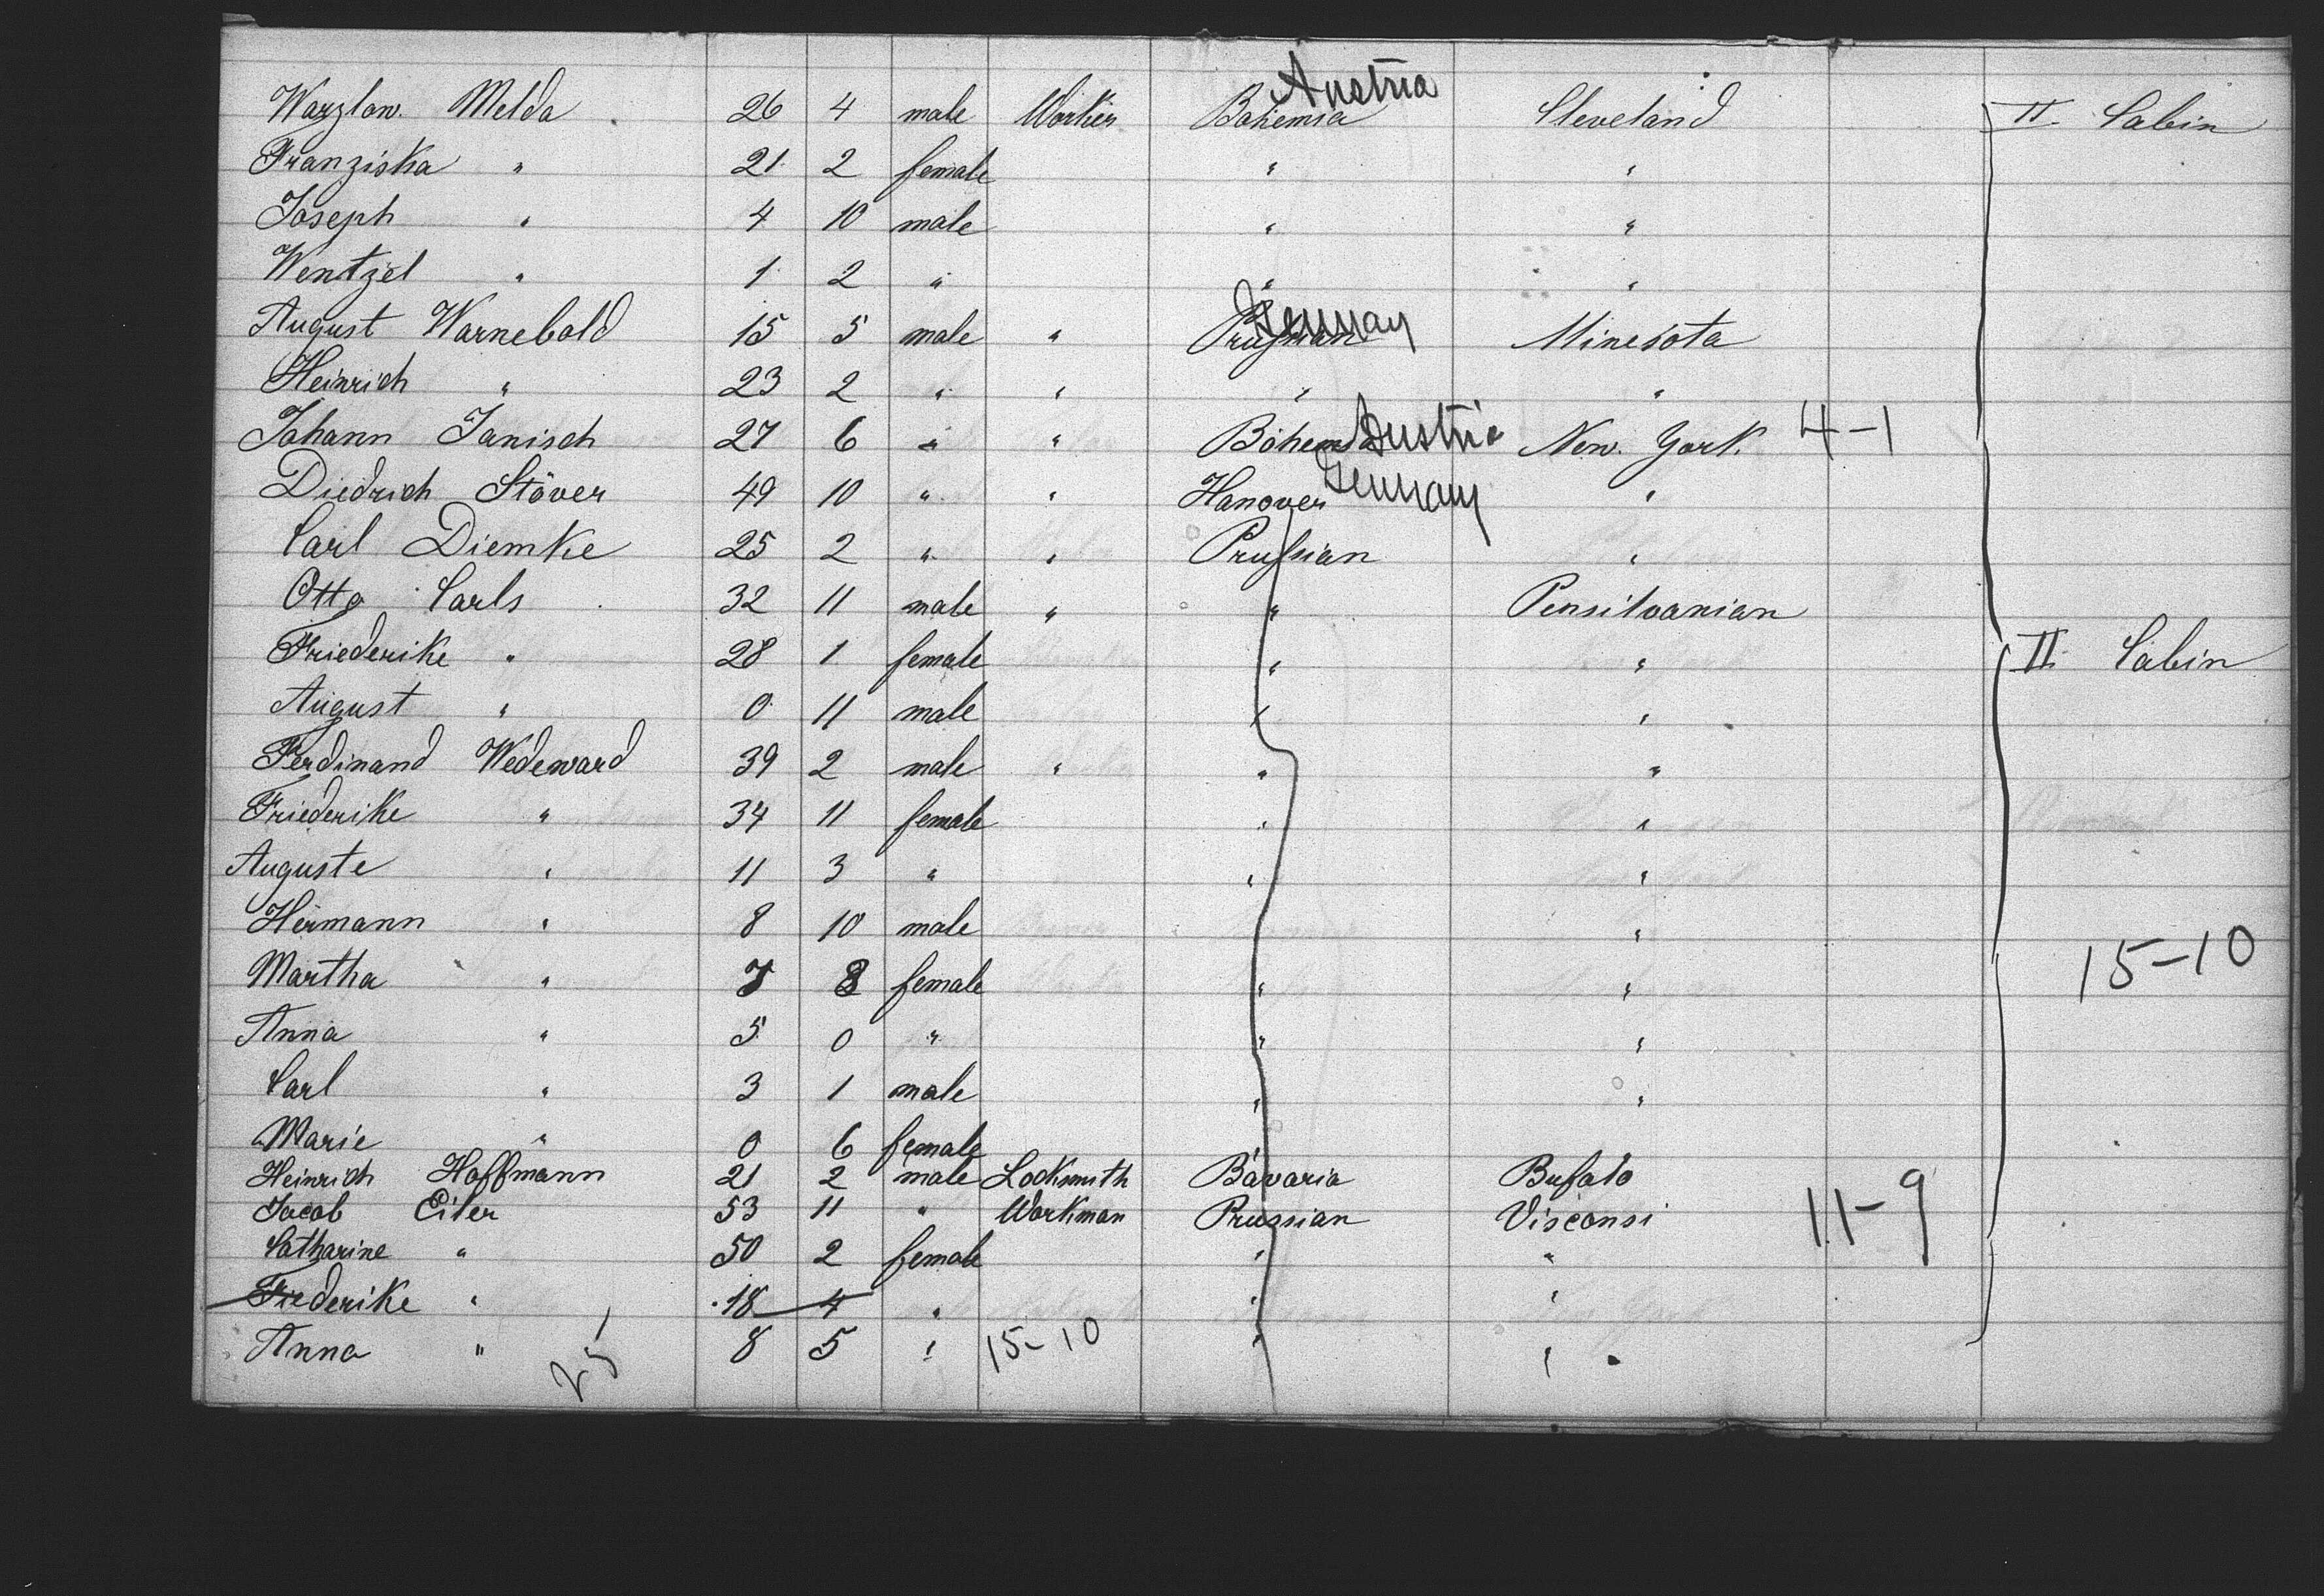 Austria
Wazzlaw. Melda 26 4 male Worker Bohemia Cleveland II. Cabin
Franziska " 21 2 female " "
Joseph " 4 10 male " "
Wentzel " 1 2 " " "
Germany
August Warnebold 15 5 male " Prussian Minesota
Heinrich " 23 2 " " " "
Johann Janisch 27 6 " " Bohemia Austria New. York. 4-1
Diedrich Stöver 49 10 " " Hanover Germany "
Carl Diemke 25 2 " " Prussian "
Otto Carls 32 11 male " " Pensilvanian
Friederike " 28 1 female " " II. Cabin
August " 0 11 male " "
Ferdinand Wedeward 39 2 male " " "
Friederike " 34 11 female " "
Auguste " 11 3 " " "
Hermann " 8 10 male "
Martha " 7 8 female " " 15-10
Anna " 5 0 " " "
Carl " 3 1 male " "
Marie " 0 6 female "
Heinrich Hoffmann 21 2 male Locksmith Bavaria Bufalo
Jacob Eiler 53 11 " Workman Prussian Visconsi 11-9
Catharine " 50 2 female " "
Friederike " 18 4 " " "
Anna " 25 8 5 " 15-10 " "